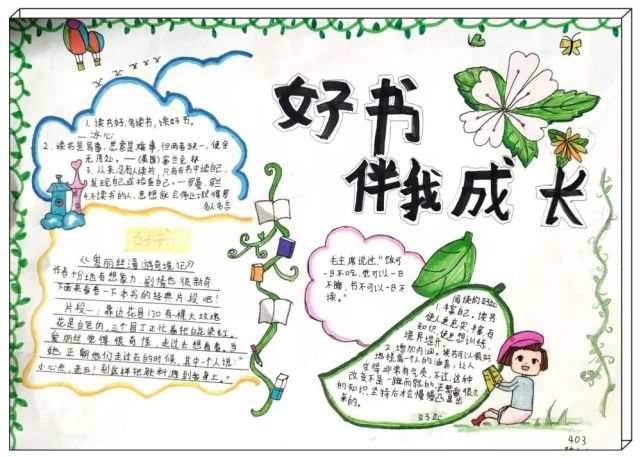 好书
伴我成长
1.读书好,多读书,读好书。
—冰心
2.读书是易事,思索是难事,但两者缺一,便全
无用处。——(美国)富兰克林
3.从来没有人读书,只有在书中读自己,
发现自己或检查自己。—罗曼·罗兰
4.不读书的人,思想就会停止。
名人名言
好书
《爱丽丝漫游奇境记》
作者十分地有想象力,剧情也很新奇
下面来看看一下本书的经典片段吧!
片段一:靠近花园门口有棵大玫瑰
花是白色的,三个园丁正忙着把白花染红。
爱丽丝觉得很奇怪,走过去想看看,当
她正朝他们走过去的时候,其中一个人说:“
小心点,老五!别这样把颜料溅到我身上。”
毛主席说过“饭可
一日不吃,觉可以一日
不睡,书不可以一日不
读。”
阅读的好处
1.丰富自己。读书
使人更充实,丰富
知识,使思想训练,
境界提升。
2.增加内涵。读书可以很好
地提高一个人的涵养,让人
变得非常有气质,不过,这种
改变不是一蹴而就的,还需要很久
的知识,坚持后才会慢慢凸显出
来的。
403